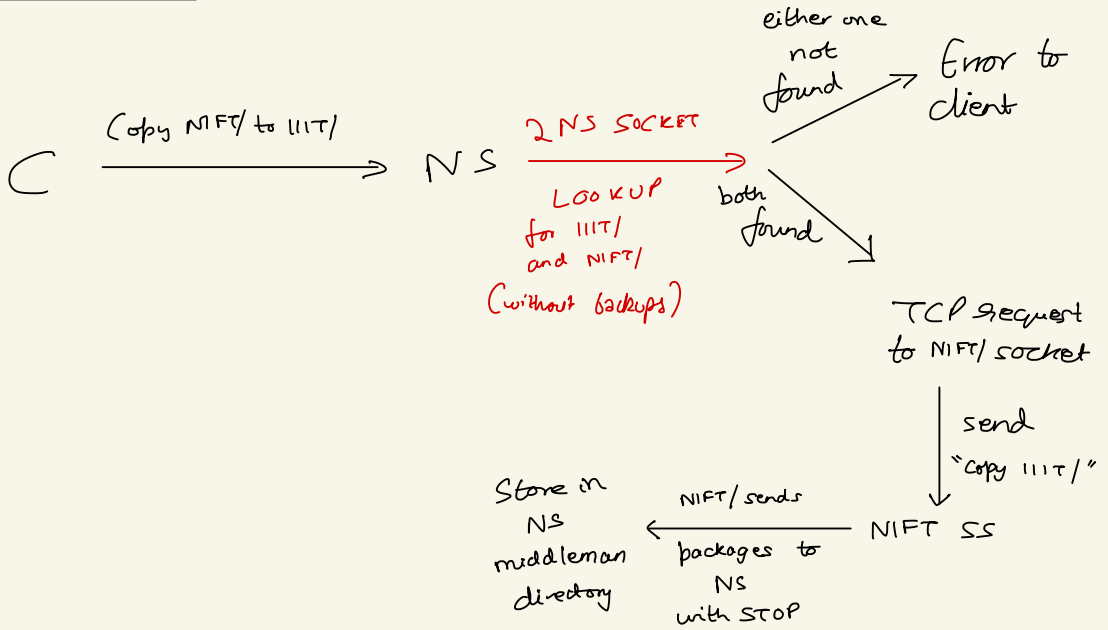 C
Copy NIFT/ to IIIT/
NS
2 NS SOCKET
LOOKUP
for IIIT/
and NIFT/
(without backups)
either one
not
found
Error to
client
both
found
TCP request
to NIFT/ socket
send
"Copy IIIT/"
NIFT SS
NIFT/ sends
packages to
NS
with STOP
Store in
NS
middleman
directory